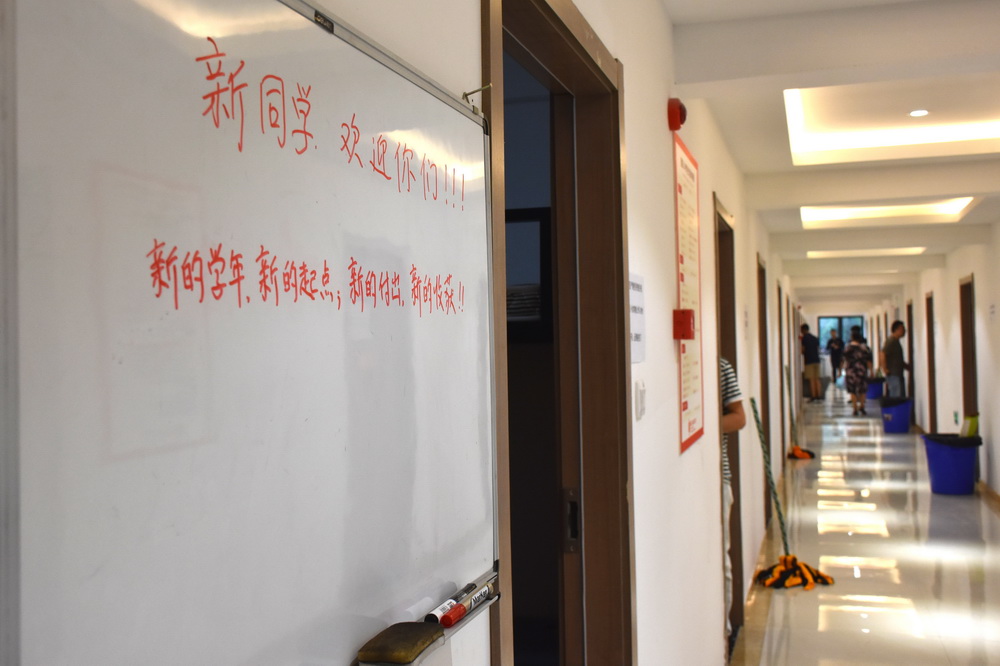 新同学,欢迎你们!!!
新的学年,新的起点;新的付出,新的收获!!